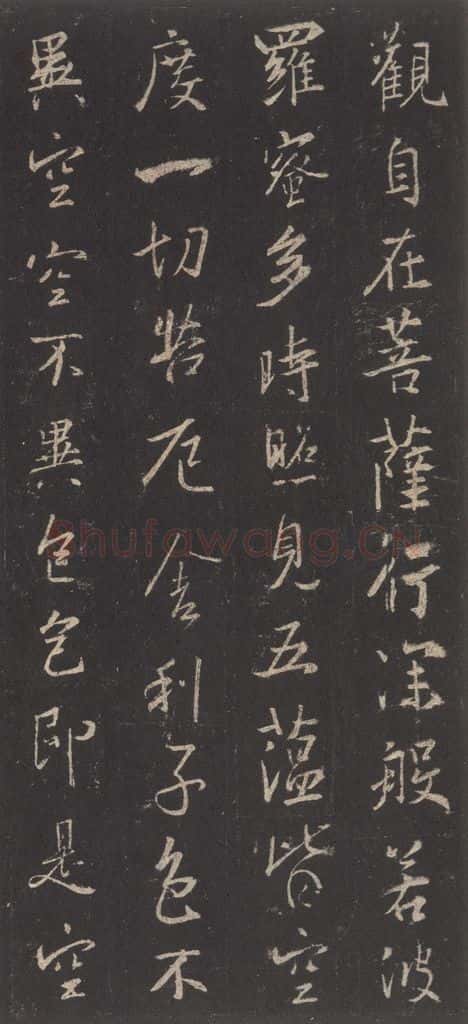 觀自在菩薩行深般若波
羅蜜多時照見五蘊皆空
度一切苦厄舍利子色不
異空空不異色色即是空
Shufawang.CN